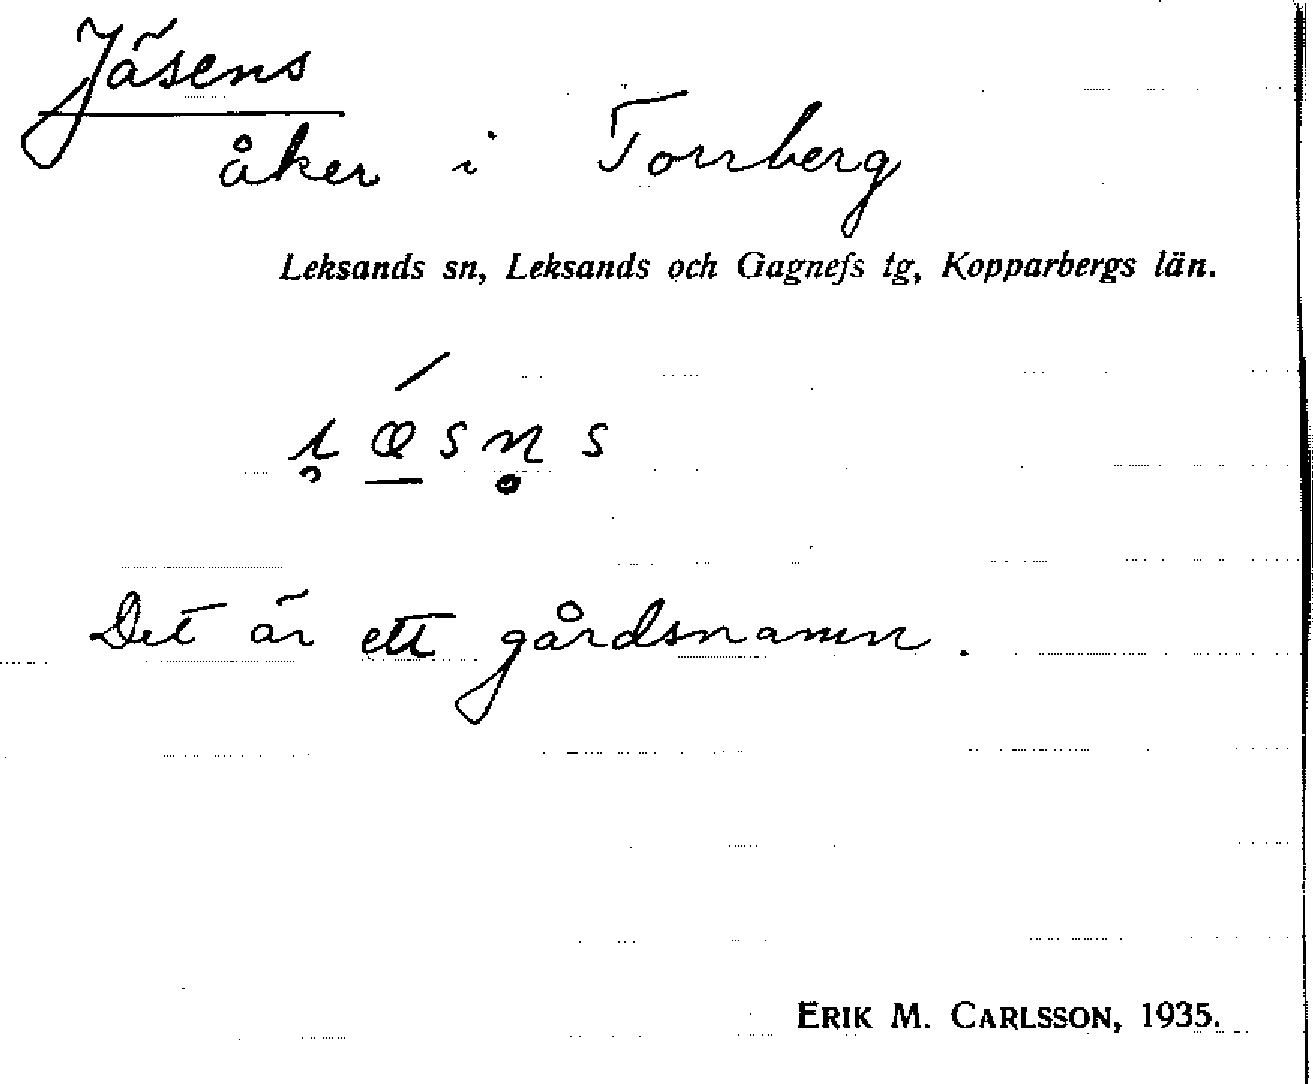 Jäsens
åker i Torrberg
Leksands sn, Leksands och Gagnefs tg, Kopparbergs län.
Det är ett gårdsnamn.
ERIK M. CARLSSON, 1935.